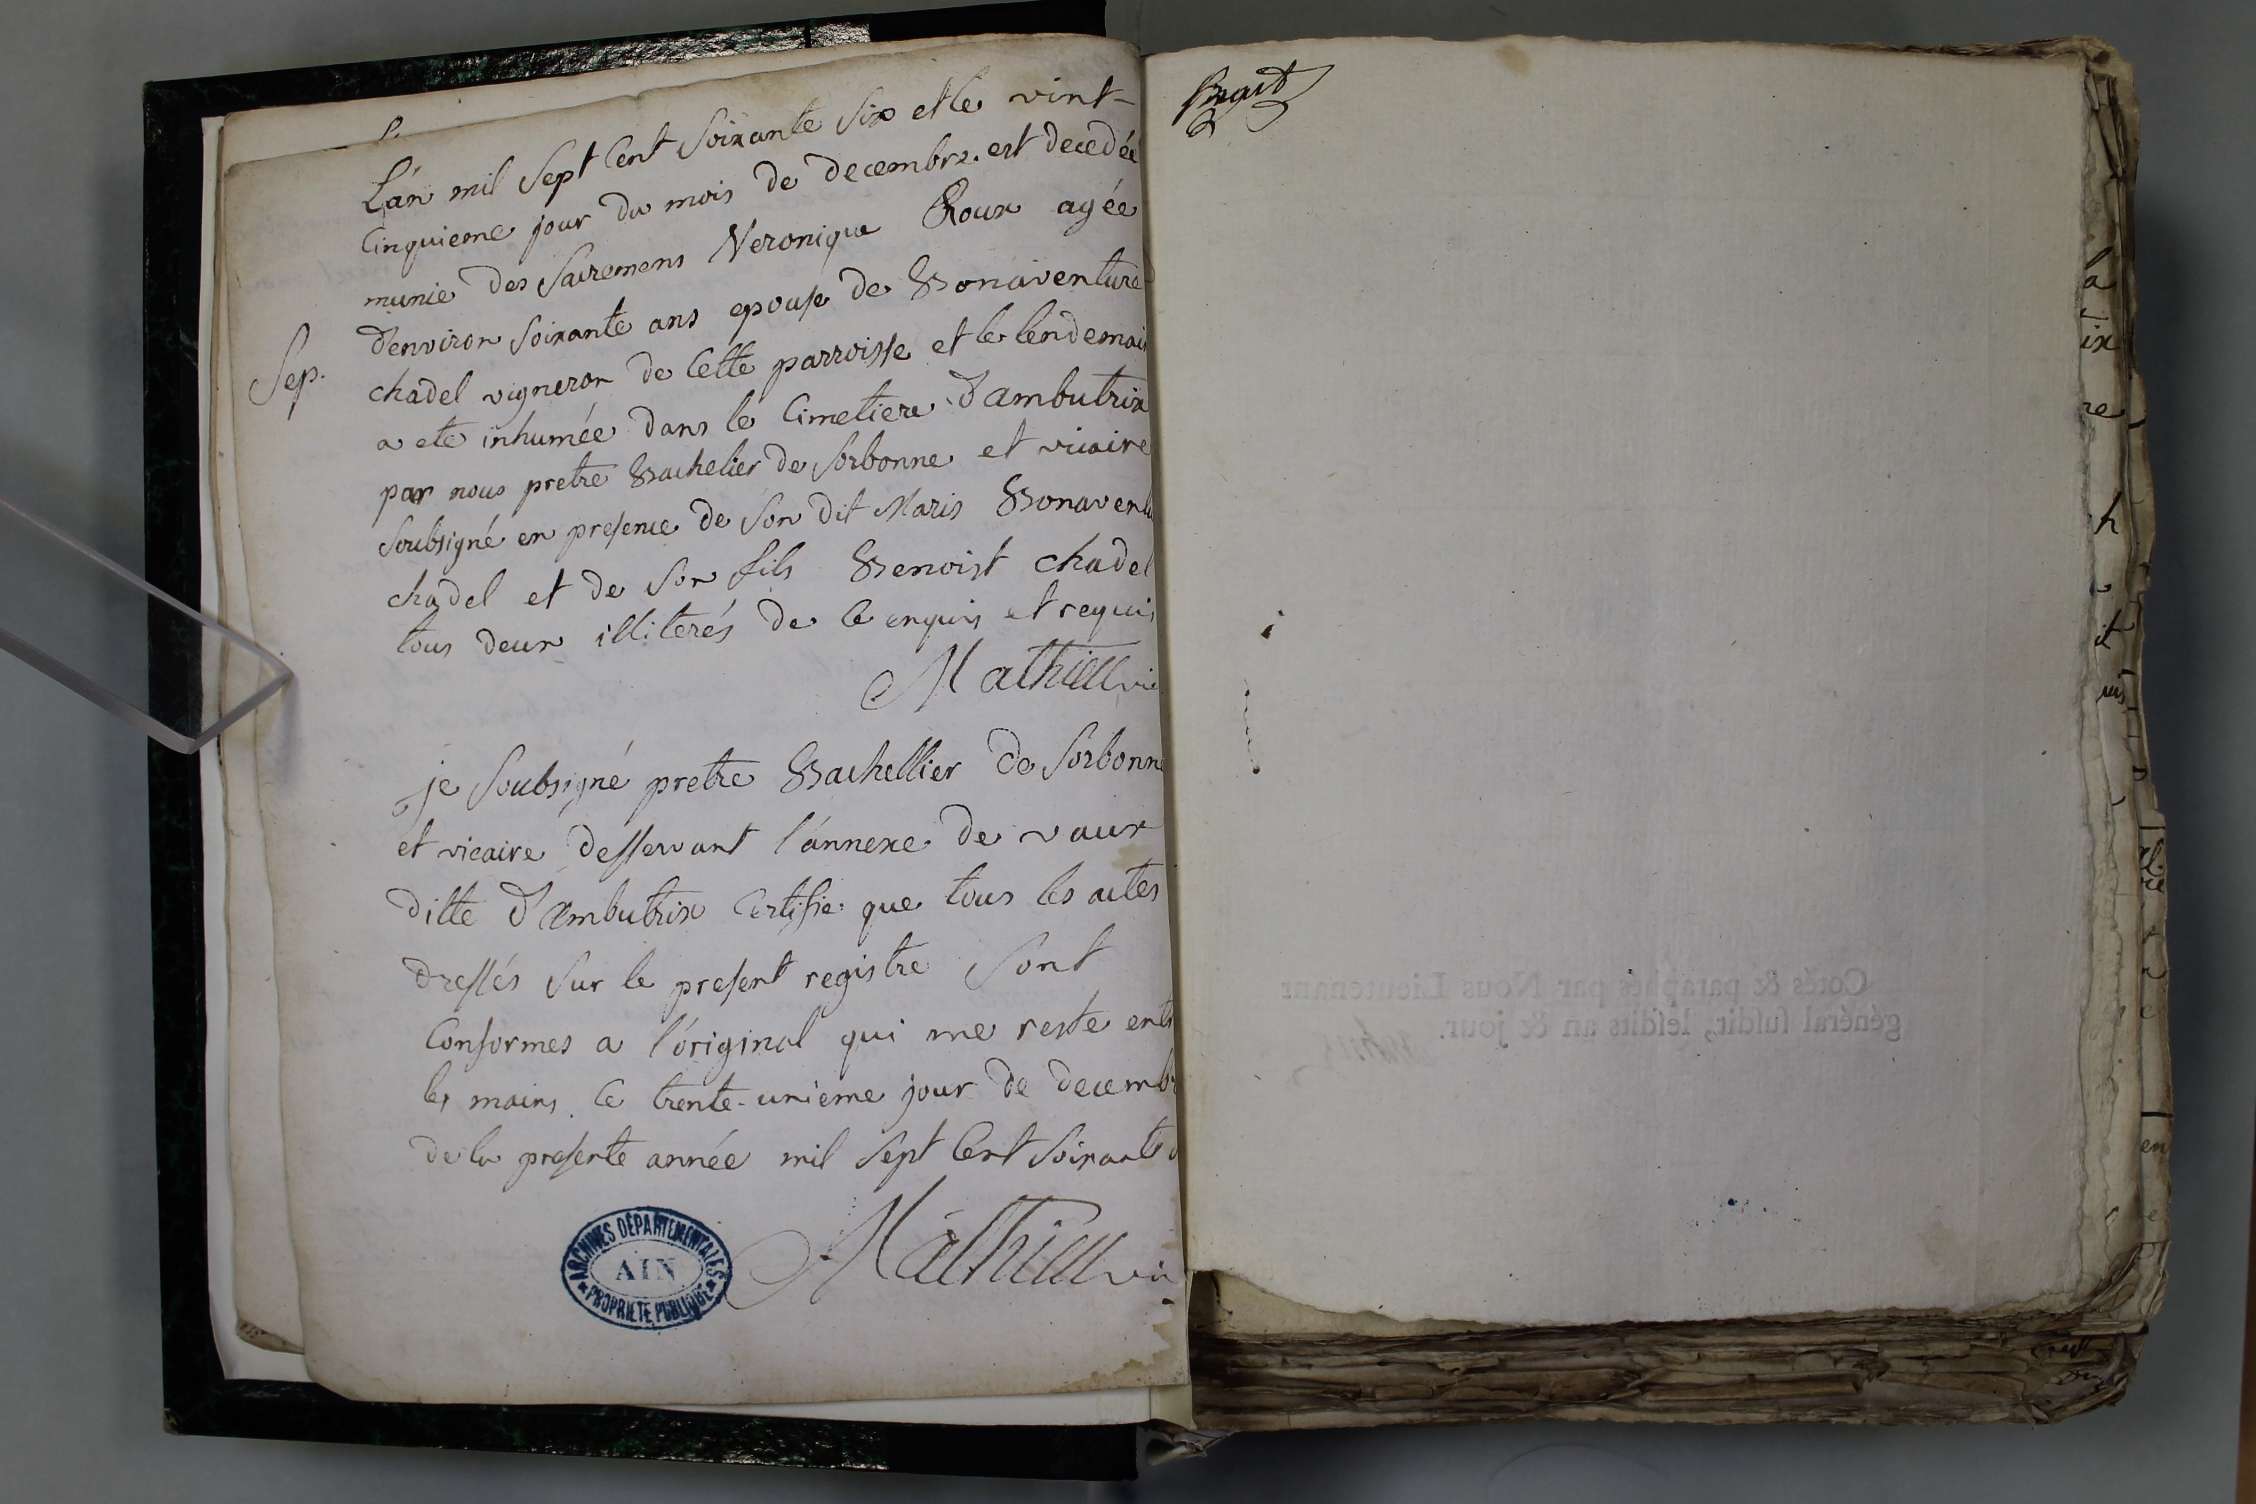 L'an mil Sept Cent Soixante Six et le vint-
Cinquieme jour du mois de decembre est decedée
munie des Sacremens Veronique Roux agée
Sep.
d'environ Soixante ans epouse de Bonaventure
chadel vigneron de Cette parroisse et le lendemain
a ete inhumée dans le Cimetiere d'ambutrix
par nous pretre Bachelier de Sorbonne et vicaire
Soubsigné en presence de Son dit Maris Bonavent
chadel et de Son fils Benoist chadel
tous deux illiterés de ce enquis et requis
Mathieu vic
je Soubsigné pretre Bachellier de Sorbonne
et vicaire desservant l'annexe de vaux
ditte d'Ambutrix Certifie que tous les actes
dressés Sur le present registre Sont
Conformes a l'original qui me reste ent
les mains. Ce trente-unieme jour de decemb
de la presente année mil Sept Cent Soixante
Mathieu vic
ARCHIVES DÉPARTEMENTALES
AIN
PROPRIÉTÉ PUBLIQUE
Cotés & paraphés par Nous Lieutenant
général susdit, lesdits an & jour.